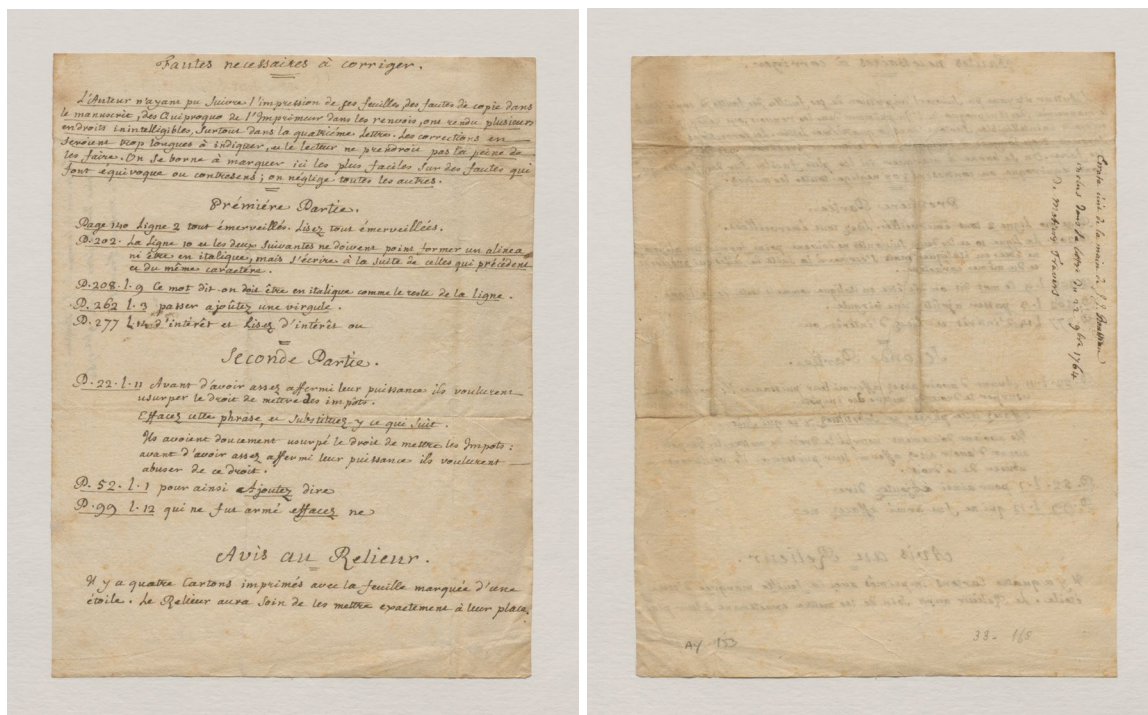 Fautes necessaires à corriger.
L'Auteur n'ayant pu suivre l'impression de ses feuilles, des fautes de copie dans
le manuscrit, des Quiproquo de l'Imprimeur dans les renvois, ont rendu plusieurs
endroits inintelligibles, surtout dans la quatriéme Lettre. Les corrections en
seroient trop longues à indiquer, et le lecteur ne prendroit pas la peine de
les faire. On se borne à marquer ici les plus faciles sur des fautes qui
font équivoque ou contresens; on néglige toutes les autres.
Prémiére Partie.
Page 140 Ligne 2 tout émerveillés. Lisez tout émerveillées.
P. 202. La Ligne 10 et les deux suivantes ne doivent point former un alinea
ni être en italique, mais s'écrire à la suite de celles qui précédent
et du même caractère.
P. 208. l. 9 Le mot dit-on doit être en italique comme le reste de la ligne.
P. 262 l. 3 passer ajoûtez une virgule.
P. 277 d'intérêt et Lisez d'intérêt ou
Seconde Partie.
P. 22. l. 11 Avant d'avoir assez affermi leur puissance ils voulurent
usurper le droit de mettre des impots.
Effacez cette phrase, et substituez-y ce qui suit.
Ils avoient doucement usurpé le droit de mettre les Impots:
avant d'avoir assez affermi leur puissance ils voulurent
abuser de ce droit.
P. 52. l. 1 pour ainsi Ajoutez dire
P. 99 l. 12 qui ne fut armé effacez ne
Avis au Relieur.
Il y a quatre Cartons imprimés avec la feuille marquée d'une
étoile. Le Relieur aura soin de les mettre exactement à leur place.
de la main de J. J. Rousseau
inclus dans la lettre du 22 9bre 1764
à
33- 165